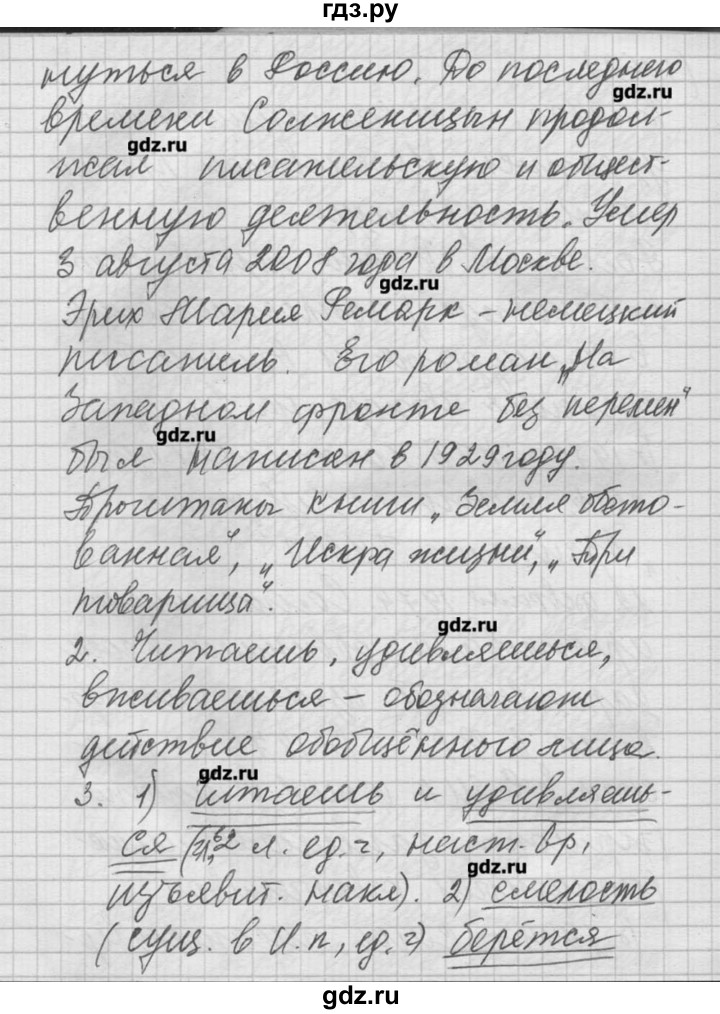 гдз.ру
нуться в Россию. До последнего
gdz.ru
времени Солженицын продол-
gdz.ru
жал писательскую и общест-
венную деятельность. Умер
3 августа 2008 года в Москве.
gdz.ru
Эрих Мария Ремарк - немецкий
писатель. Его роман „На
Западном фронте без перемен“
gdz.ru
был написан в 1929 году.
Прочитаны книги „Земля обето-
ванная“, „Искра жизни“, „Три
товарища“.
gdz.ru
2. Читаешь, удивляешься,
вживаешься - обозначают
действие обобщённого лица.
gdz.ru
3. 1) Читаешь и удивляешь-
ся (гл. 2 л. ед. ч, наст. вр,
gdz.ru
изъявит. накл). 2) смелость
(сущ. в И. п, ед. ч) берётся
gdz.ru